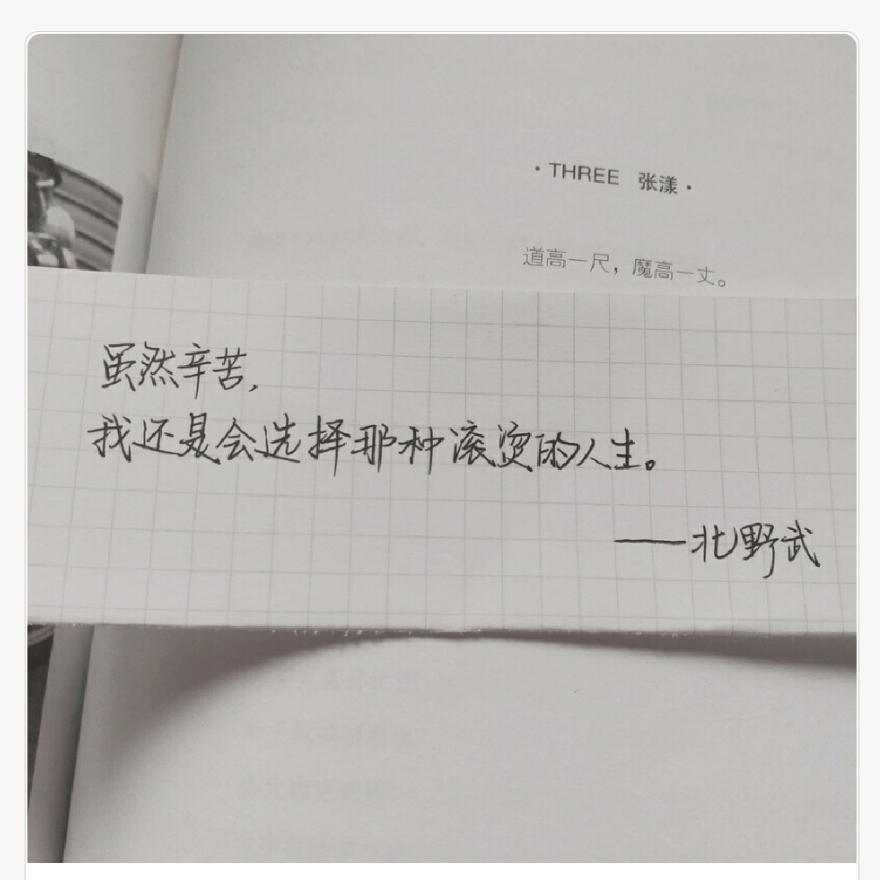 ·THREE 张漾·
道高一尺，魔高一丈。
虽然辛苦，
我还是会选择那种滚烫的人生。
——北野武